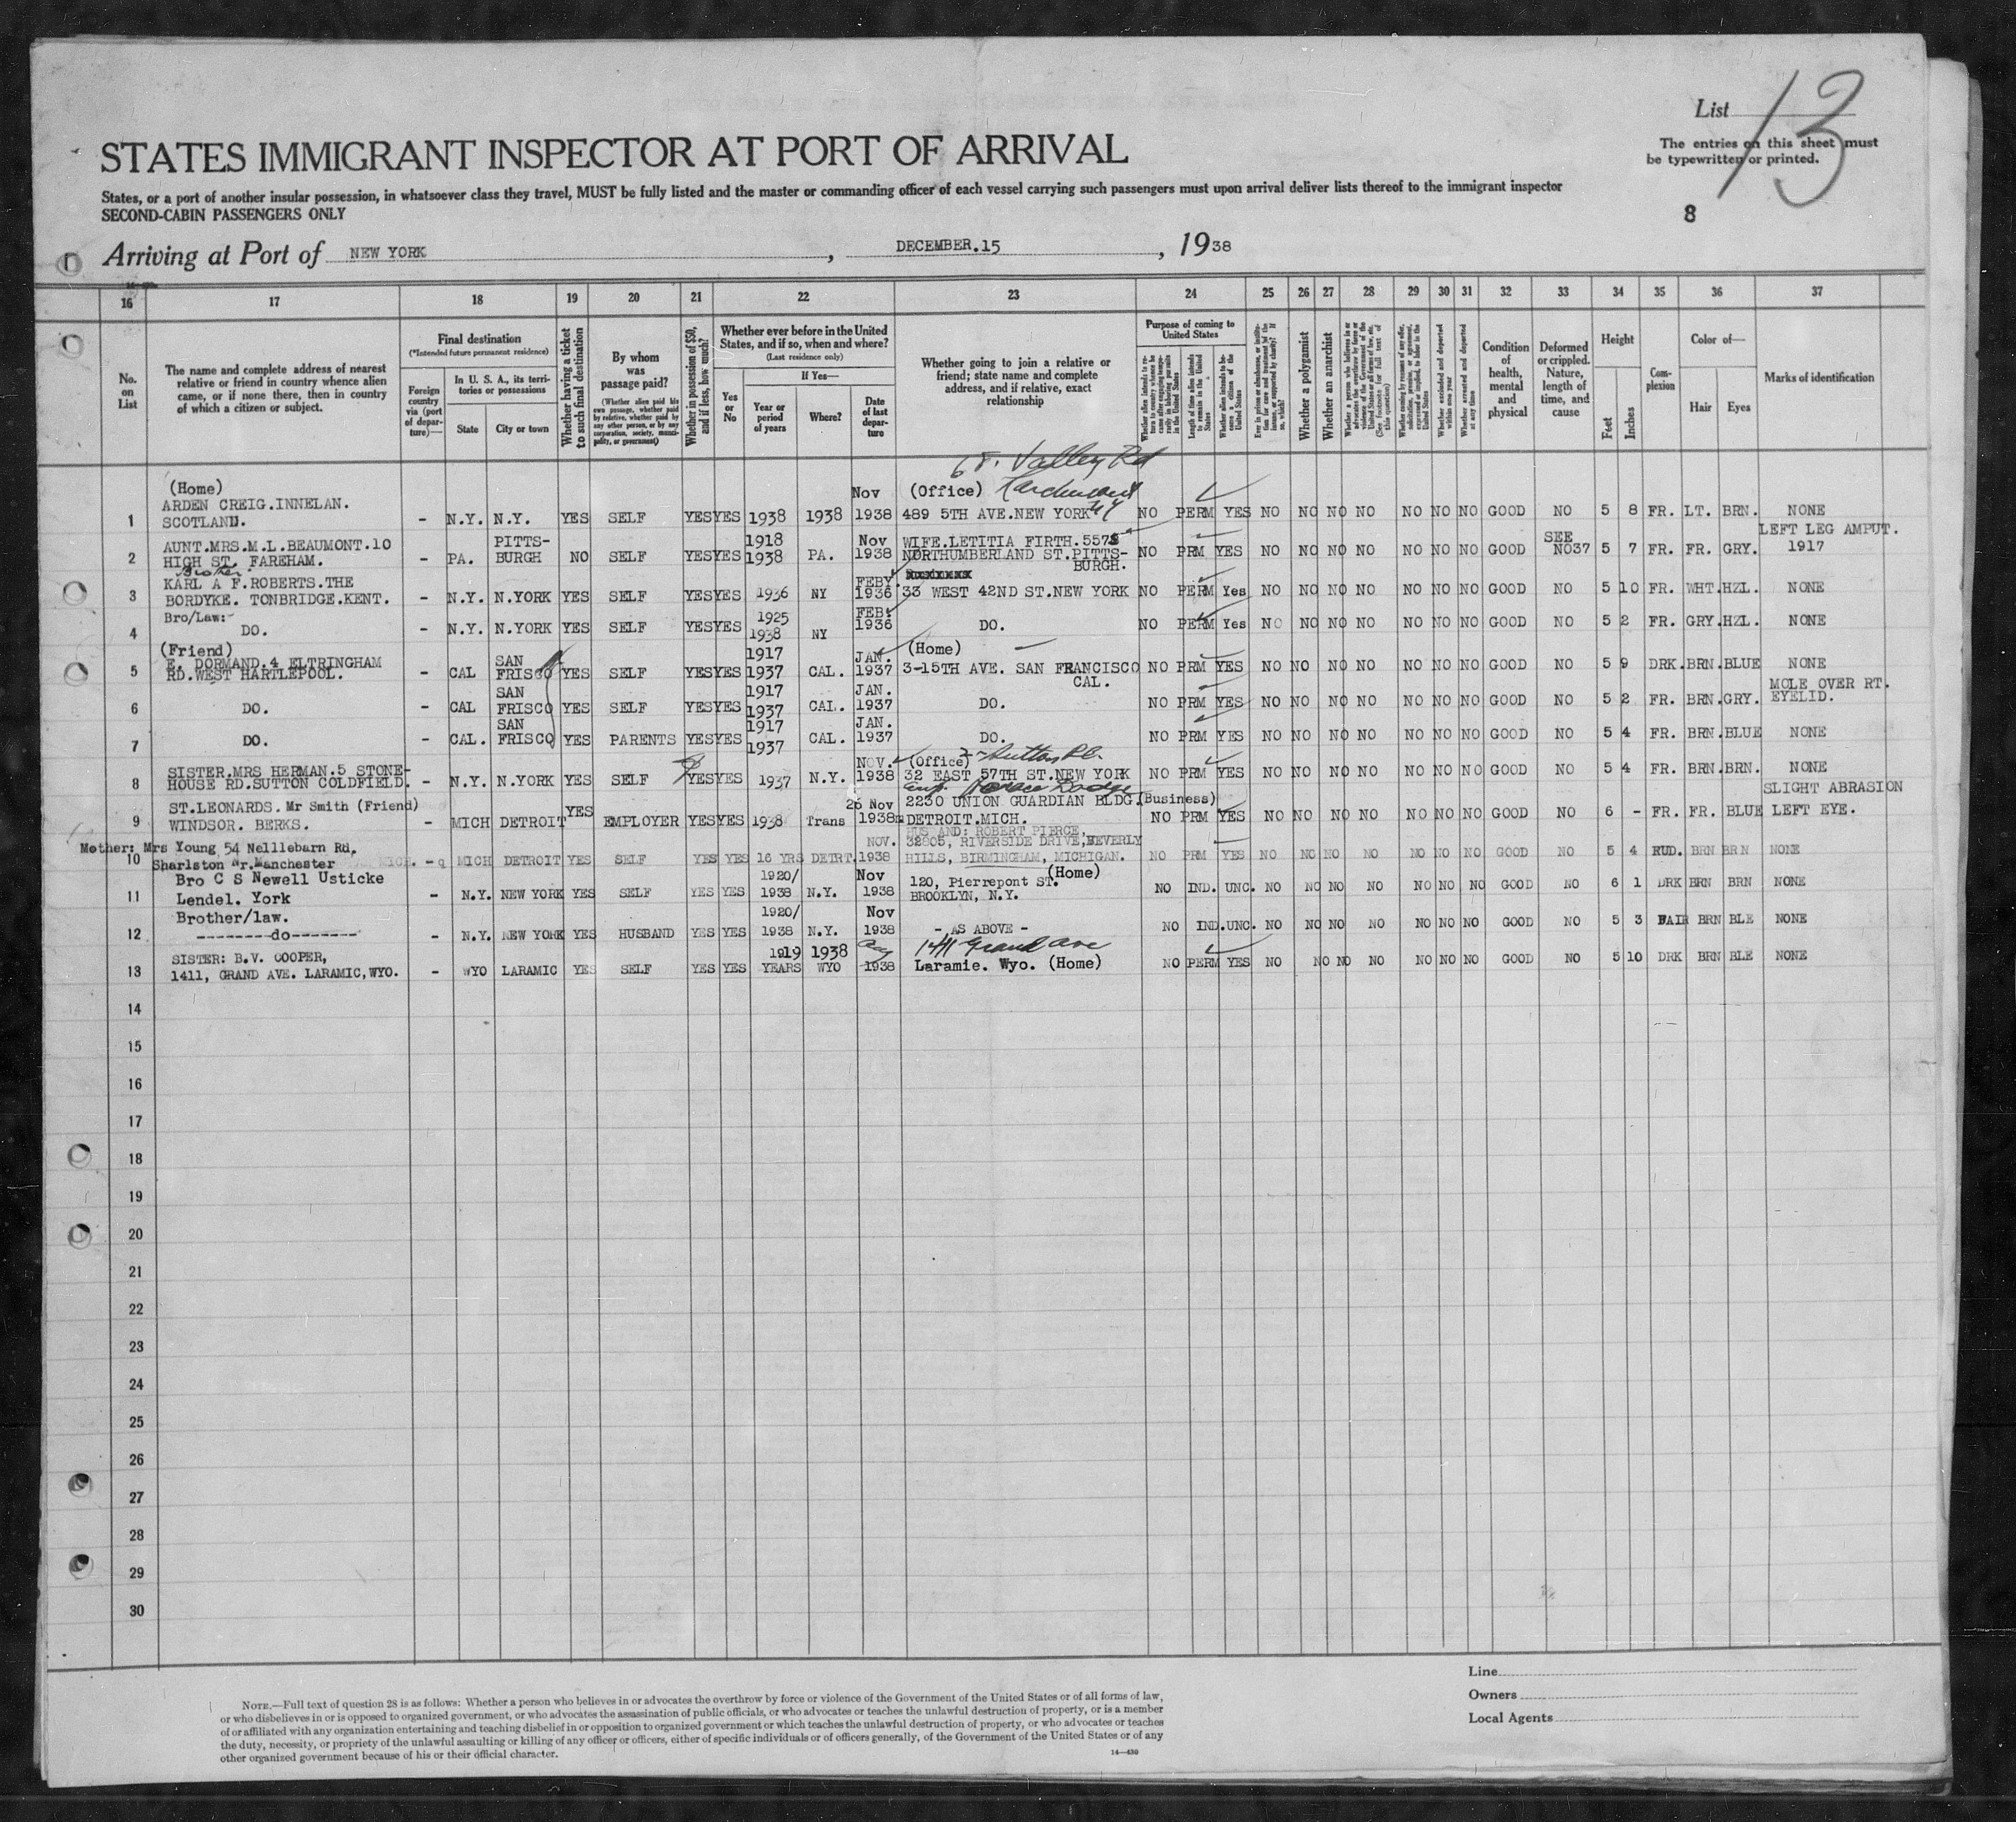 List 13
The entries on this sheet must
be typewritten or printed.
STATES IMMIGRANT INSPECTOR AT PORT OF ARRIVAL
States, or a port of another insular possession, in whatsoever class they travel, MUST be fully listed and the master or commanding officer of each vessel carrying such passengers must upon arrival deliver lists thereof to the immigrant inspector
SECOND-CABIN PASSENGERS ONLY
8
Arriving at Port of NEW YORK, DECEMBER.15, 1938
16 17 18 19 20 21 22 23 24 25 26 27 28 29 30 31 32 33 34 35 36 37
No. on List
The name and complete address of nearest
relative or friend in country whence alien
came, or if none there, then in country
of which a citizen or subject.
Final destination
(*Intended future permanent residence)
Foreign country via (port of departure)—
In U. S. A., its territories or possessions
State
City or town
Whether having a ticket to such final destination
By whom was passage paid?
(Whether alien paid his own passage, whether paid by relative, whether paid by any other person, or by any corporation, society, municipality, or government)
Whether in possession of $50, and if less, how much?
Whether ever before in the United States, and if so, when and where?
(Last residence only)
Yes or No
If Yes—
Year or period of years
Where?
Date of last departure
Whether going to join a relative or
friend; state name and complete
address, and if relative, exact
relationship
Purpose of coming to United States
Whether a polygamist
Whether an anarchist
Condition of health, mental and physical
Deformed or crippled. Nature, length of time, and cause
Height
Feet
Inches
Complexion
Color of—
Hair
Eyes
Marks of identification
68. Valley Rd
1 (Home) ARDEN CREIG.INNELAN. SCOTLAND. - N.Y. N.Y. YES SELF YES YES 1938 1938 Nov 1938 (Office) 489 5TH AVE.NEW YORK NY NO PERM YES NO NO NO NO NO NO NO GOOD NO 5 8 FR. LT. BRN. NONE
2 AUNT.MRS.M.L.BEAUMONT.10 HIGH ST. FAREHAM. - PA. PITTS-BURGH NO SELF YES YES 1918 1938 PA. Nov 1938 WIFE.LETITIA FIRTH.5575 NORTHUMBERLAND ST.PITTS-BURGH. NO PRM YES NO NO NO NO NO NO NO GOOD SEE NO37 5 7 FR. FR. GRY. LEFT LEG AMPUT. 1917
3 Brother KARL A F.ROBERTS.THE BORDYKE. TONBRIDGE.KENT. - N.Y. N.YORK YES SELF YES YES 1936 NY FEBY. 1936 33 WEST 42ND ST.NEW YORK NO PERM Yes NO NO NO NO NO NO NO GOOD NO 5 10 FR. WHT. HZL. NONE
4 Bro/Law:- DO. - N.Y. N.YORK YES SELF YES YES 1925 1938 NY FEB. 1936 DO. NO PERM Yes NO NO NO NO NO NO NO GOOD NO 5 2 FR. GRY. HZL. NONE
5 (Friend) E. DORMAND.4 ELTRINGHAM RD.WEST HARTLEPOOL. - CAL SAN FRISCO YES SELF YES YES 1917 1937 CAL. JAN. 1937 (Home) 3-15TH AVE. SAN FRANCISCO CAL. NO PRM YES NO NO NO NO NO NO NO GOOD NO 5 9 DRK. BRN. BLUE NONE
6 DO. - CAL SAN FRISCO YES SELF YES YES 1917 1937 CAL. JAN. 1937 DO. NO PRM YES NO NO NO NO NO NO NO GOOD NO 5 2 FR. BRN. GRY. MOLE OVER RT. EYELID.
7 DO. - CAL. SAN FRISCO YES PARENTS YES YES 1917 1937 CAL. JAN. 1937 DO. NO PRM YES NO NO NO NO NO NO NO GOOD NO 5 4 FR. BRN. BLUE NONE
8 SISTER.MRS HERMAN.5 STONE-HOUSE RD.SUTTON COLDFIELD. - N.Y. N.YORK YES SELF YES YES 1937 N.Y. NOV. 1938 (Office) 2 Sutton Pl. 32 EAST 57TH ST.NEW YORK NO PRM YES NO NO NO NO NO NO NO GOOD NO 5 4 FR. BRN. BRN. NONE
9 ST.LEONARDS. Mr Smith (Friend) WINDSOR. BERKS. - MICH DETROIT YES EMPLOYER YES YES 1938 Trans 26 Nov 1938 Horace Dodge 2230 UNION GUARDIAN BLDG.(Business) DETROIT.MICH. NO PRM YES NO NO NO NO NO NO NO GOOD NO 6 - FR. FR. BLUE SLIGHT ABRASION LEFT EYE.
10 Mother: Mrs Young 54 Nelllebarn Rd, Sharlston Nr.Manchester - MICH DETROIT YES SELF YES YES 16 YRS DETRT. NOV. 1938 HUSBAND: ROBERT PIERCE, 32805, RIVERSIDE DRIVE,BEVERLY HILLS, BIRMINGHAM, MICHIGAN. NO PRM YES NO NO NO NO NO NO NO GOOD NO 5 4 RUD. BRN BRN NONE
11 Bro C S Newell Usticke Lendel. York - N.Y. NEW YORK YES SELF YES YES 1920/ 1938 N.Y. Nov 1938 120, Pierrepont ST. (Home) BROOKLYN, N.Y. NO IND. UNC. NO NO NO NO NO NO NO GOOD NO 6 1 DRK BRN BRN NONE
12 Brother/law. --------do------- - N.Y. NEW YORK YES HUSBAND YES YES 1920/ 1938 N.Y. Nov 1938 - AS ABOVE - NO IND. UNC. NO NO NO NO NO NO NO GOOD NO 5 3 FAIR BRN BLE NONE
13 SISTER: B.V. COOPER, 1411, GRAND AVE. LARAMIC,WYO. - WYO LARAMIC YES SELF YES YES 1919 1938 YEARS WYO Aug 1938 1411 Grand Ave Laramie. Wyo. (Home) NO PERM YES NO NO NO NO NO NO NO GOOD NO 5 10 DRK BRN BLE NONE
14
15
16
17
18
19
20
21
22
23
24
25
26
27
28
29
30
Line
Owners
Local Agents
NOTE.—Full text of question 28 is as follows: Whether a person who believes in or advocates the overthrow by force or violence of the Government of the United States or of all forms of law,
or who disbelieves in or is opposed to organized government, or who advocates the assassination of public officials, or who advocates or teaches the unlawful destruction of property, or is a member
of or affiliated with any organization entertaining and teaching disbelief in or opposition to organized government or which teaches the unlawful destruction of property, or who advocates or teaches
the duty, necessity, or propriety of the unlawful assaulting or killing of any officer or officers, either of specific individuals or of officers generally, of the Government of the United States or of any
other organized government because of his or their official character.
14—430